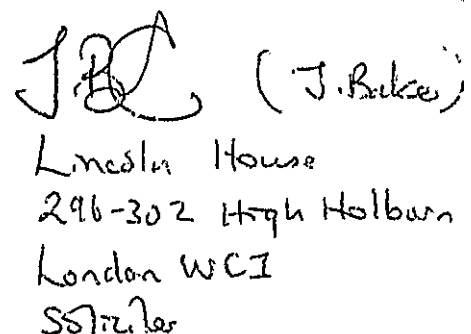 JB (J. Baker)
Lincoln House
296-302 High Holborn
London WC1
Solicitor